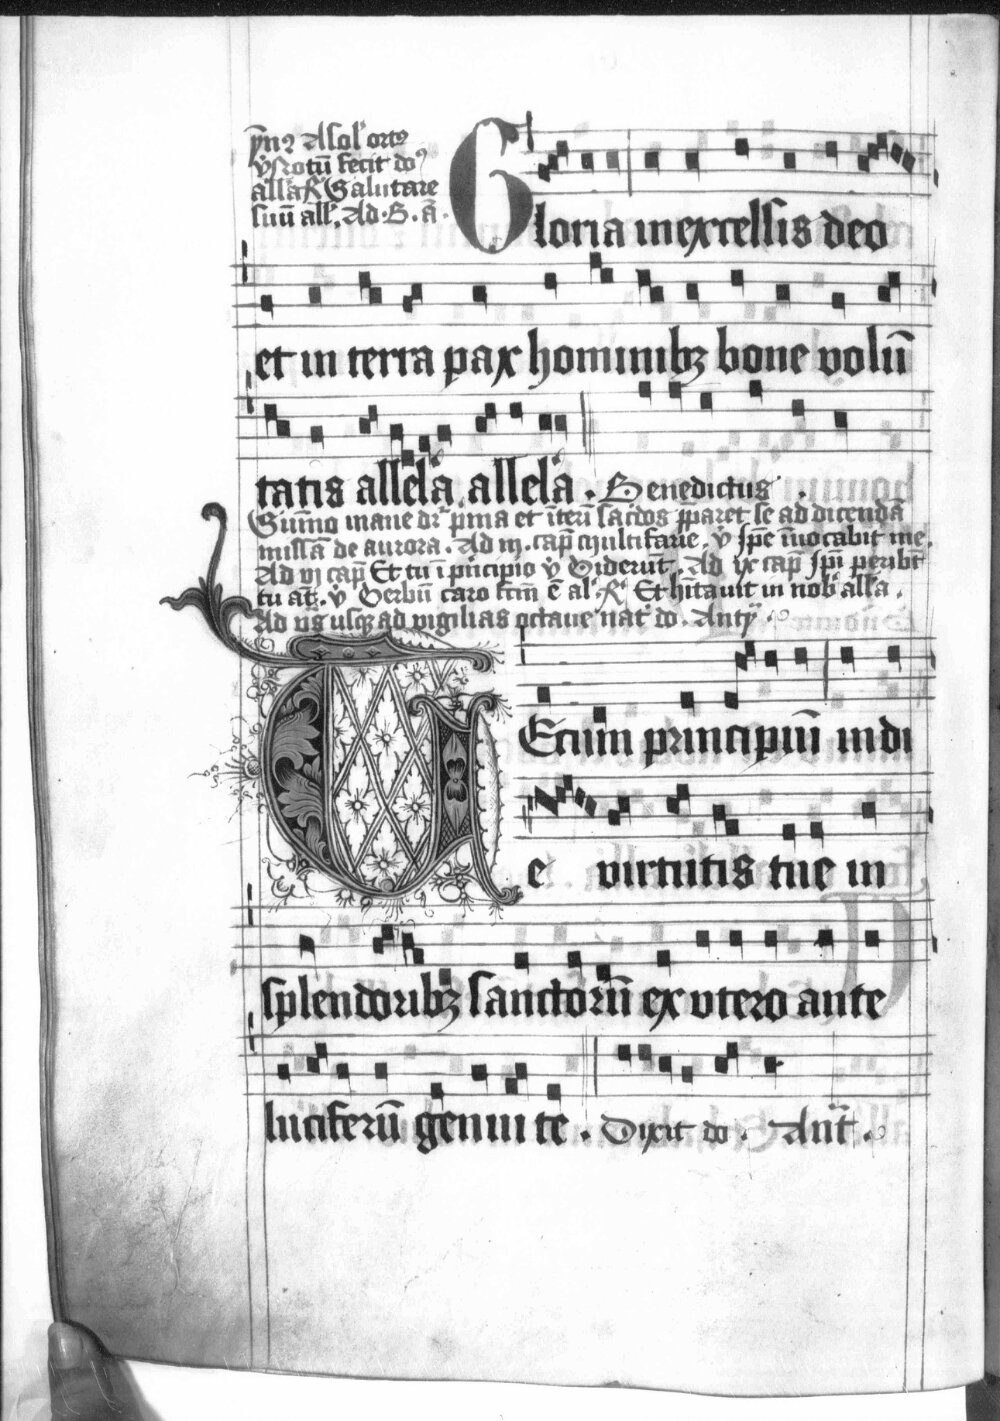 ẏmꝰ A sol' ortꝰ
v̉ Notū fecit do'
alla R' Salutare
suū all'. Ad. B. ā.
Gloria in excelsis deo
et in terra pax hominibꝫ bone volū
tatis allela allela. Benedictus.
Sūmo mane dr̄ pma et īterī sac̄dos p̄paret se ad dicendā
missā de aurora. Ad iij. cap̄ Multifarie. v̉ Ip̄e īuocabit me.
Ad vj cap̄ Et tu ī pⁱncipio v̉ Viderūt. Ad ix cap̄ Ip̄i peribūt
tu at̄. v̉ Verbū caro fc̄m ē al'. R' Et hītauit in nob' all'a.
Ad vs̄ usqꝫ ad vigilias octaue nat' do. Anty̆.
TEcum principiū in di
e virtutis tue in
splendoribꝫ sanctorū ex utero ante
luciferū genui te. Dixit do. Anīt.